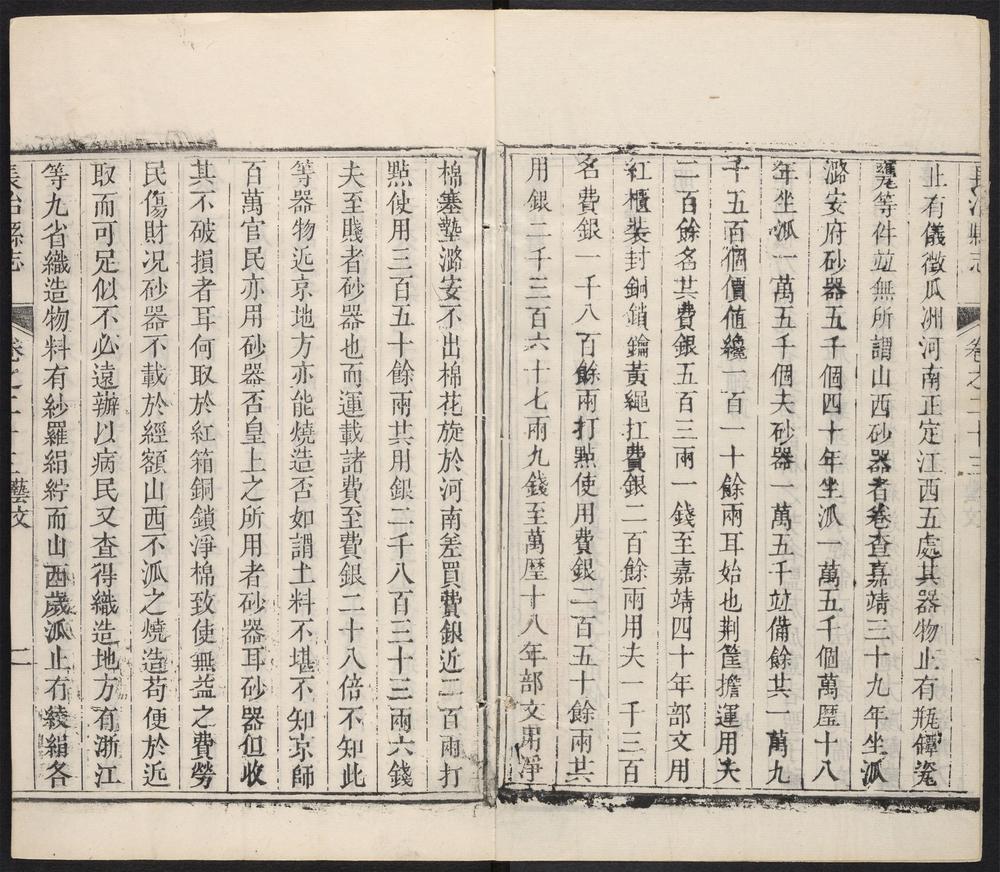 長治縣志
卷之二十三 藝文
止有儀徵瓜洲河南正定江西五處其器物止有瓶罈瓷
甕等件竝無所謂山西砂器者卷查嘉靖三十九年坐派
潞安府砂器五千個四十年坐派一萬五千個萬曆十八
年坐派一萬五千個夫砂器一萬五千竝備餘共一萬九
千五百個價值纔一百一十餘兩耳始也荆筐擔運用夫
二百餘名共費銀五百三兩一錢至嘉靖四十年部文用
紅櫃裝封銅鎖鑰黃繩扛費銀二百餘兩用夫一千三百
名費銀一千八百餘兩打點使用費銀二百五十餘兩共
用銀二千三百六十七兩九錢至萬曆十八年部文用淨
棉塞墊潞安不出棉花旋於河南差買費銀近二百兩打
點使用三百五十餘兩共用銀二千八百三十三兩六錢
夫至賤者砂器也而運載諸費至費銀二十八倍不知此
等器物近京地方亦能燒造否如謂土料不堪不知京師
百萬官民亦用砂器否皇上之所用者砂器耳砂器但收
其不破損者耳何取於紅箱銅鎖淨棉致使無益之費勞
民傷財況砂器不載於經額山西不派之燒造苟便於近
取而可足似不必遠辦以病民又查得織造地方有浙江
等九省織造物料有紗羅絹紵而山西歲派止有綾絹各
長治縣志
卷之二十三 藝文
二